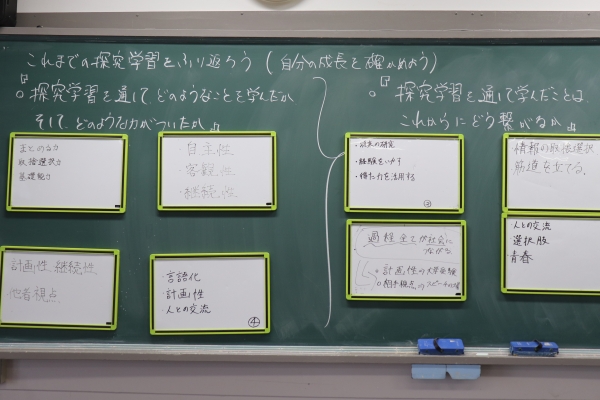 これまでの探究学習をふり返ろう(自分の成長を確かめよう)
『
○探究学習を通して、どのようなことを学んだか
そして、どのような力がついたか。』
まとめる力
取捨選択力
基礎能力
・自主性
・客観性
・継続性
計画性、継続性
他者視点
・言語化
・計画性
・人との交流
④
『
○探究学習を通して学んだことは、
これからにどう繋がるか。』
・将来の研究
・経験をいかす
・得た力を活用する
②
・情報の取捨選択
筋道を立てる。
過程全てが社会に
つながる
計画性の大学受験
相手視点のスピーチ
・人との交流
・選択肢
・青春